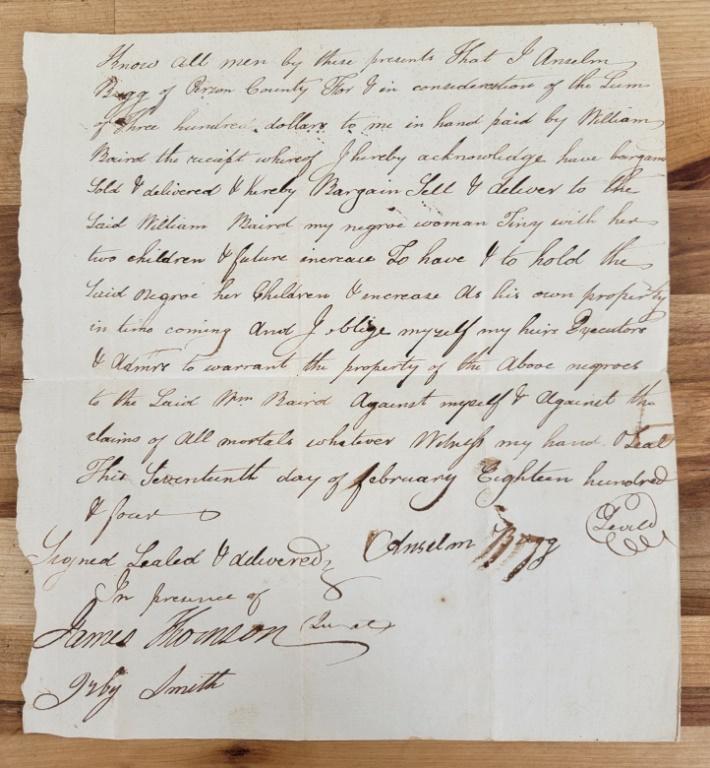 Know all men by these presents That I Anselm
Bugg of Person County For & in consideration of the Sum
of Three hundred dollars to me in hand paid by William
Baird the receipt whereof I hereby acknowledge have bargain
Sold & delivered & hereby Bargain Sell & deliver to the
Said William Baird my negroe woman Tiny with her
two children & future increase To have & to hold the
Said negroe her Children & increase As his own property
in time coming And I oblige myself my heirs Executors
& Admrs to warrant the property of the Above negroes
to the Said Wm Baird Against myself & Against the
claims of All mortals whatever Witness my hand & Seal
This Seventeenth day of february Eighteen hundred
& four
Signed Sealed & delivered Anselm Bugg
In presence of
James Thomson Jurat
Irby Smith